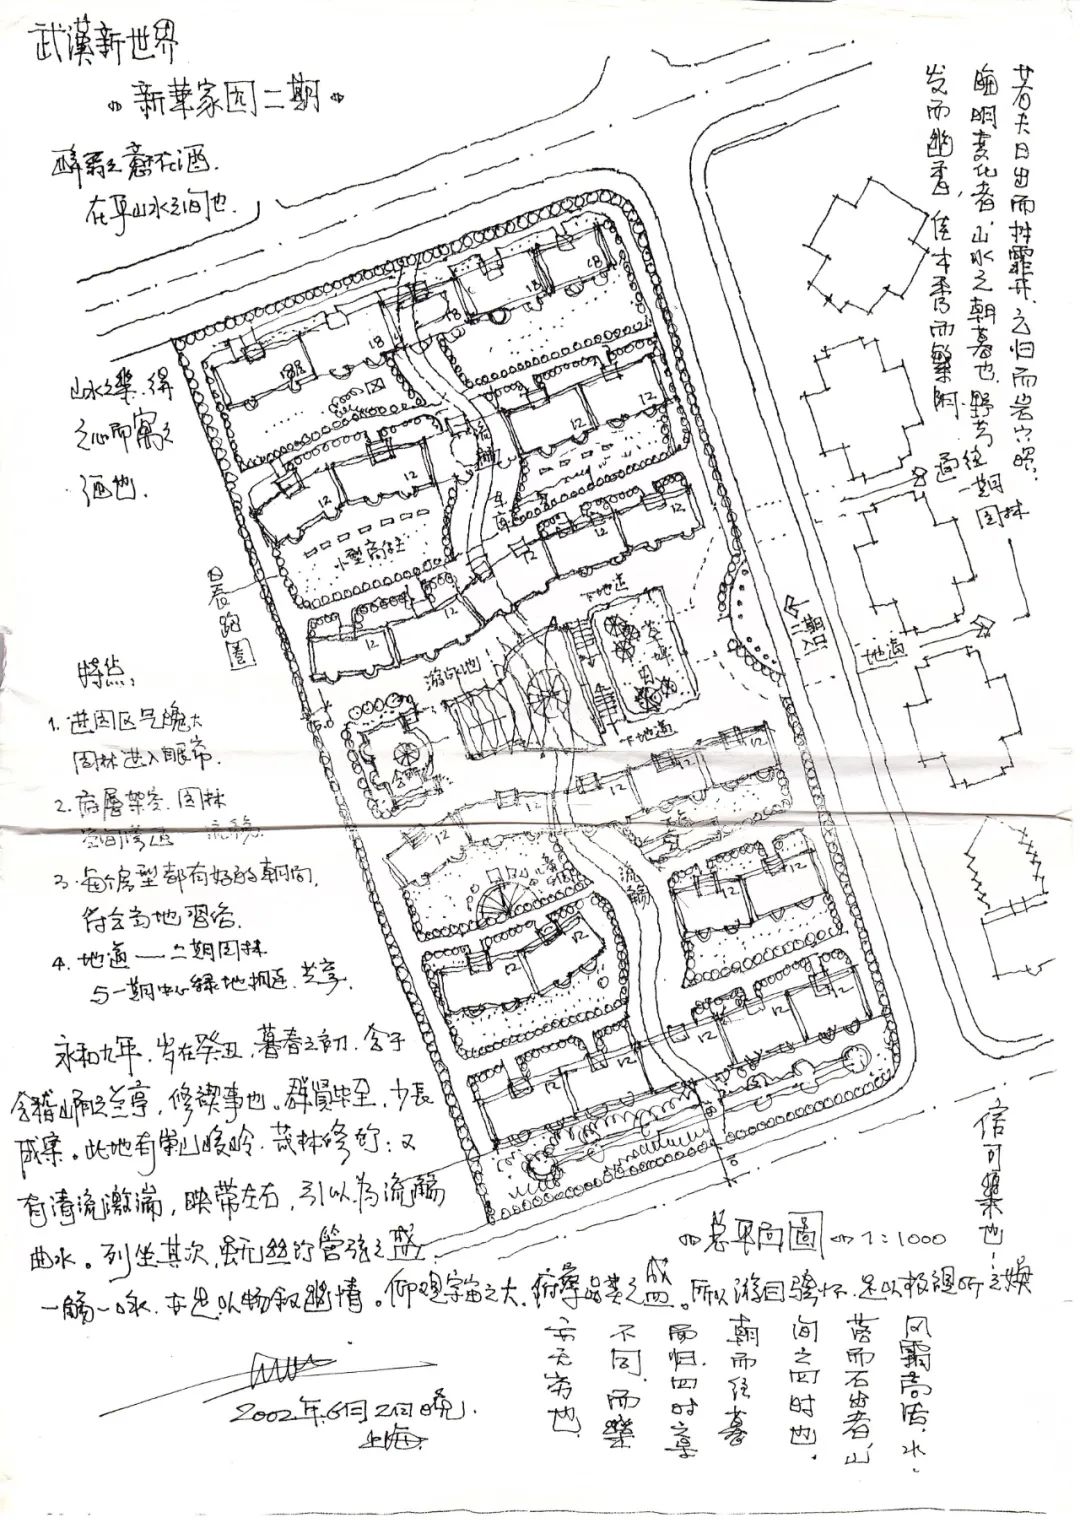 武漢新世界
新華家园二期
醉翁之意不在酒
在乎山水之间也.
山水之樂.得
之心而寓之
酒也.
若夫日出而林霏开.云归而岩穴暝.
晦明变化者,山水之朝暮也.野芳
发而幽香,佳木秀而繁阴.
通往一期
园林
18
18
18
18
12
12
12
12
小型高层
车库
流觞
晨跑圈
12
12
12
12
下地道
游泳池
下地道
二期入口
地道
会所
12
12
12
12
流觞
儿童
12
12
12
12
12
12
12
12
特点:
1. 进园区气魄大
园林进入眼帘.
2. 底層架空.园林
空间渗透 流觞
3. 每个房型都有好的朝向.
符合当地習俗.
4. 地道——二期园林
与一期中心绿地相连.共享.
永和九年.岁在癸丑.暮春之初.会于
会稽山阴之兰亭.修禊事也。群贤毕至.少長
咸集。此地有崇山峻岭.茂林修竹;又
有清流激湍,映带左右,引以为流觞
曲水。列坐其次.虽无丝竹管弦之盛.
一觞一咏.亦足以畅叙幽情。仰观宇宙之大.俯察品类之盛。所以游目骋怀.足以极视听之娱
信可樂也!
总平面圖 1:1000
风霜高洁.水
落而石出者,山
间之四时也.
朝而往.暮
而归.四时之景
不同.而樂
亦无穷也.
2002年6月2日晚.
上海